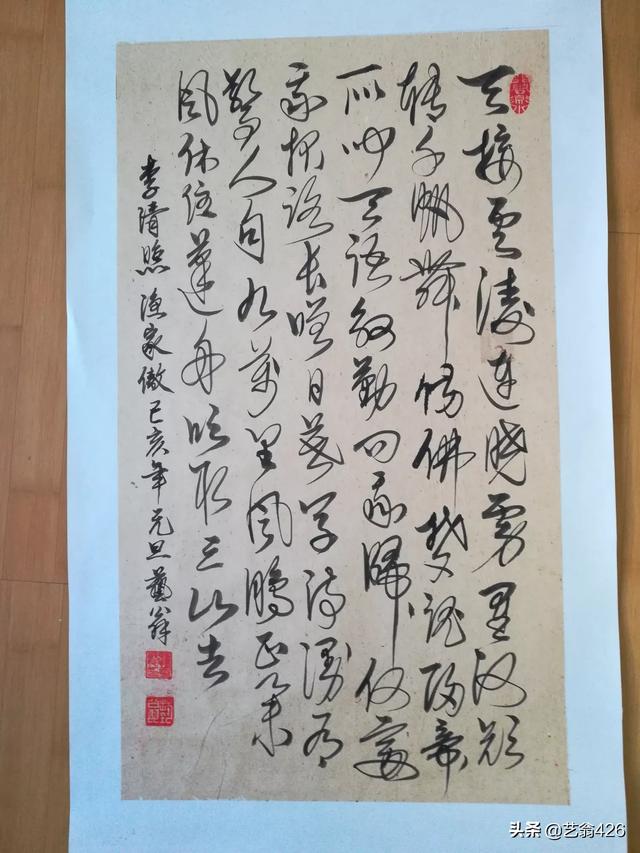 天接雲濤連曉霧星河欲
轉千帆舞仿佛夢魂歸帝
所聞天語殷勤問我歸何處
我報路長嗟日暮學詩謾有
驚人句九萬里風鵬正舉
風休住蓬舟吹取三山去
李清照漁家傲己亥年元旦藝翁
头条 @艺翁426